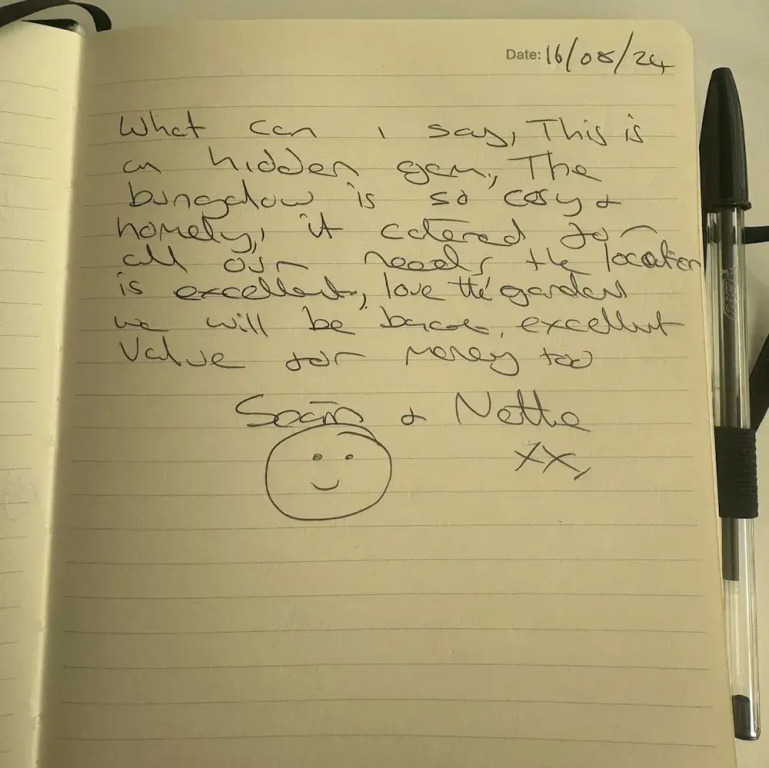 Date: 16/08/24
What can i say, This is
an hidden gem, The
bungalow is so cosy &
homely, it catered for
all our needs the location
is excellent, love the gardens
we will be back, excellent
Value for money too
Seán & Nette
xx,